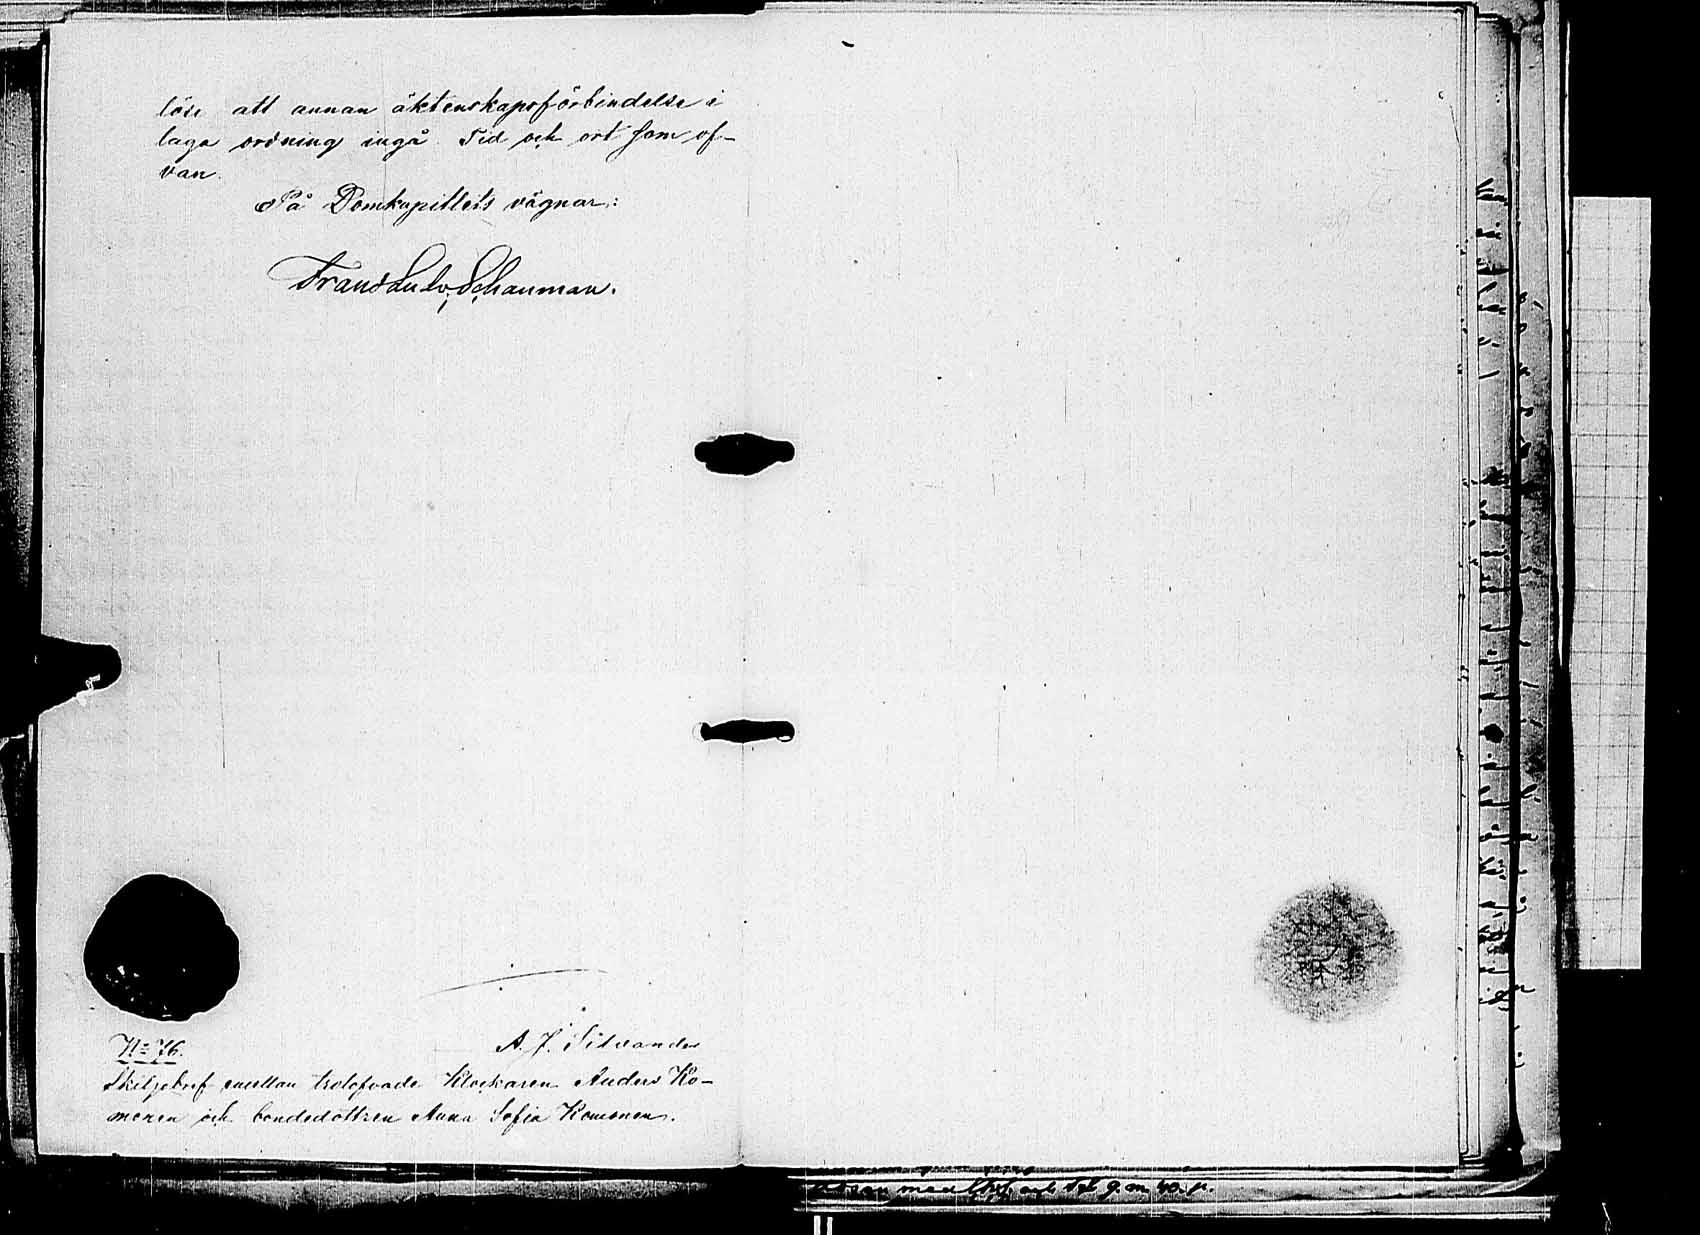 löse att annan äktenskapsförbindelse i
laga ordning ingå. Tid och ort som of-
van.
På Domkapitlets vägnar:
Frans Ludv. Schauman.
No 76.
A. J. Silvander
Skiljebref emellan trolofvade Klockaren Anders Ko-
monen och bondedottren Anna Sofia Komonen.